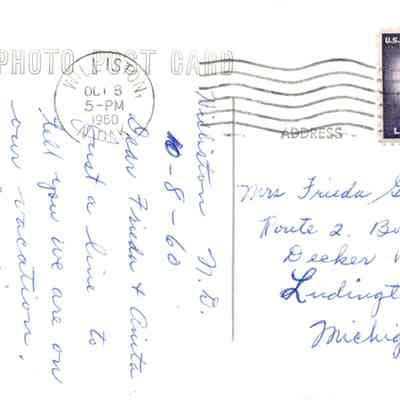 PHOTO POST CARD
WILLISTON,
OCT 8
5-PM
1960
N. DAK.
U.S.
L
ADDRESS
Williston N.D.
10-8-60
Dear Frieda & Anita
Just a line to
tell you we are on
our vacation.
Mrs Frieda
Route 2. Bo
Decker
Ludingt
Michig